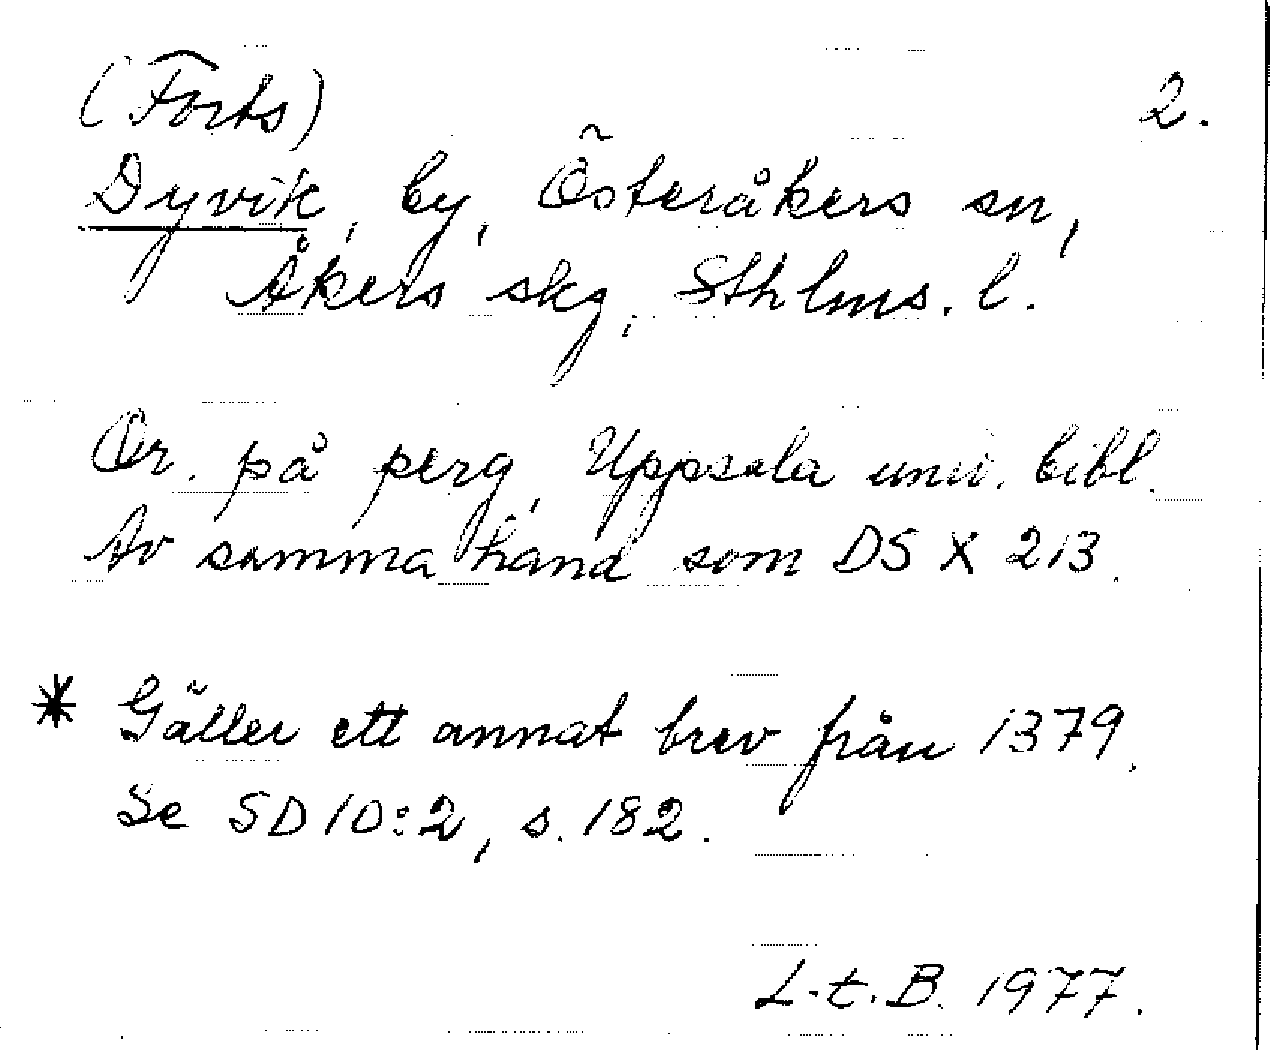 (Forts) 2.
Dyvik, by, Österåkers sn,
Åkers skg, Sthlms. l.
Or. på perg, Uppsala univ. bibl.
Av samma hand som DS X 213.
* Gäller ett annat brev från 1379.
Se SD 10:2, s. 182.
L.t.B. 1977.